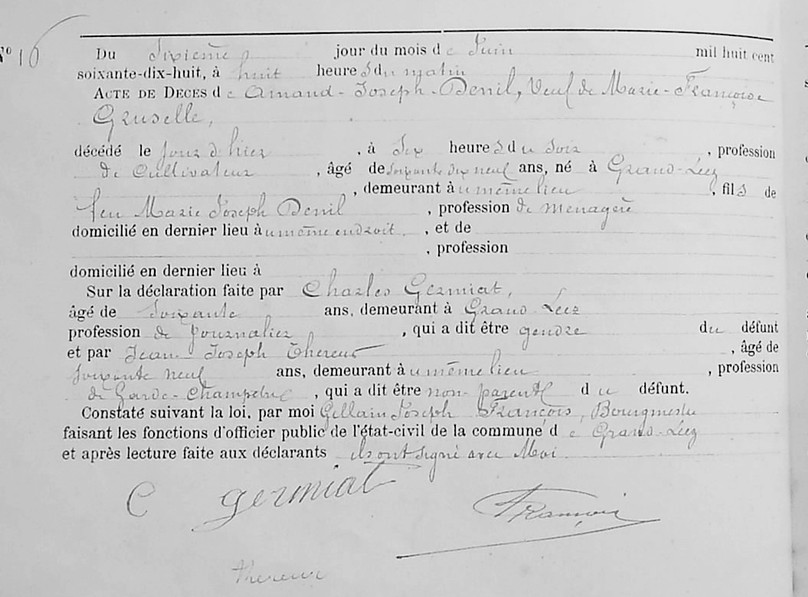 N° 16
Du Sixième jour du mois de Juin mil huit cent
soixante-dix-huit, à huit heure s du matin
ACTE DE DÉCÈS de Amand-Joseph-Denil, Veuf de Marie-Françoise
Gruselle,
décédé le jour d'hier, à Six heure s du Soir, profession
de Cultivateur, âgé de soixante dix neuf ans, né à Grand-Leez
, demeurant à u même lieu, fils de
feu Marie Joseph Denil, profession de Menagère
domicilié en dernier lieu à u même endroit, et de
, profession
domicilié en dernier lieu à
Sur la déclaration faite par Charles Germiat,
âgé de Soixante ans, demeurant à Grand-Leez
profession de Journalier, qui a dit être gendre du défunt
et par Jean-Joseph Thereur, âgé de
soixante neuf ans, demeurant à u même lieu, profession
de Garde-Champêtre, qui a dit être non parent du défunt.
Constaté suivant la loi, par moi Gillain Joseph François, Bourgmestre
faisant les fonctions d'officier public de l'état-civil de la commune de Grand-Leez
et après lecture faite aux déclarants ils ont signé avec Moi.
C germiat François
thereur